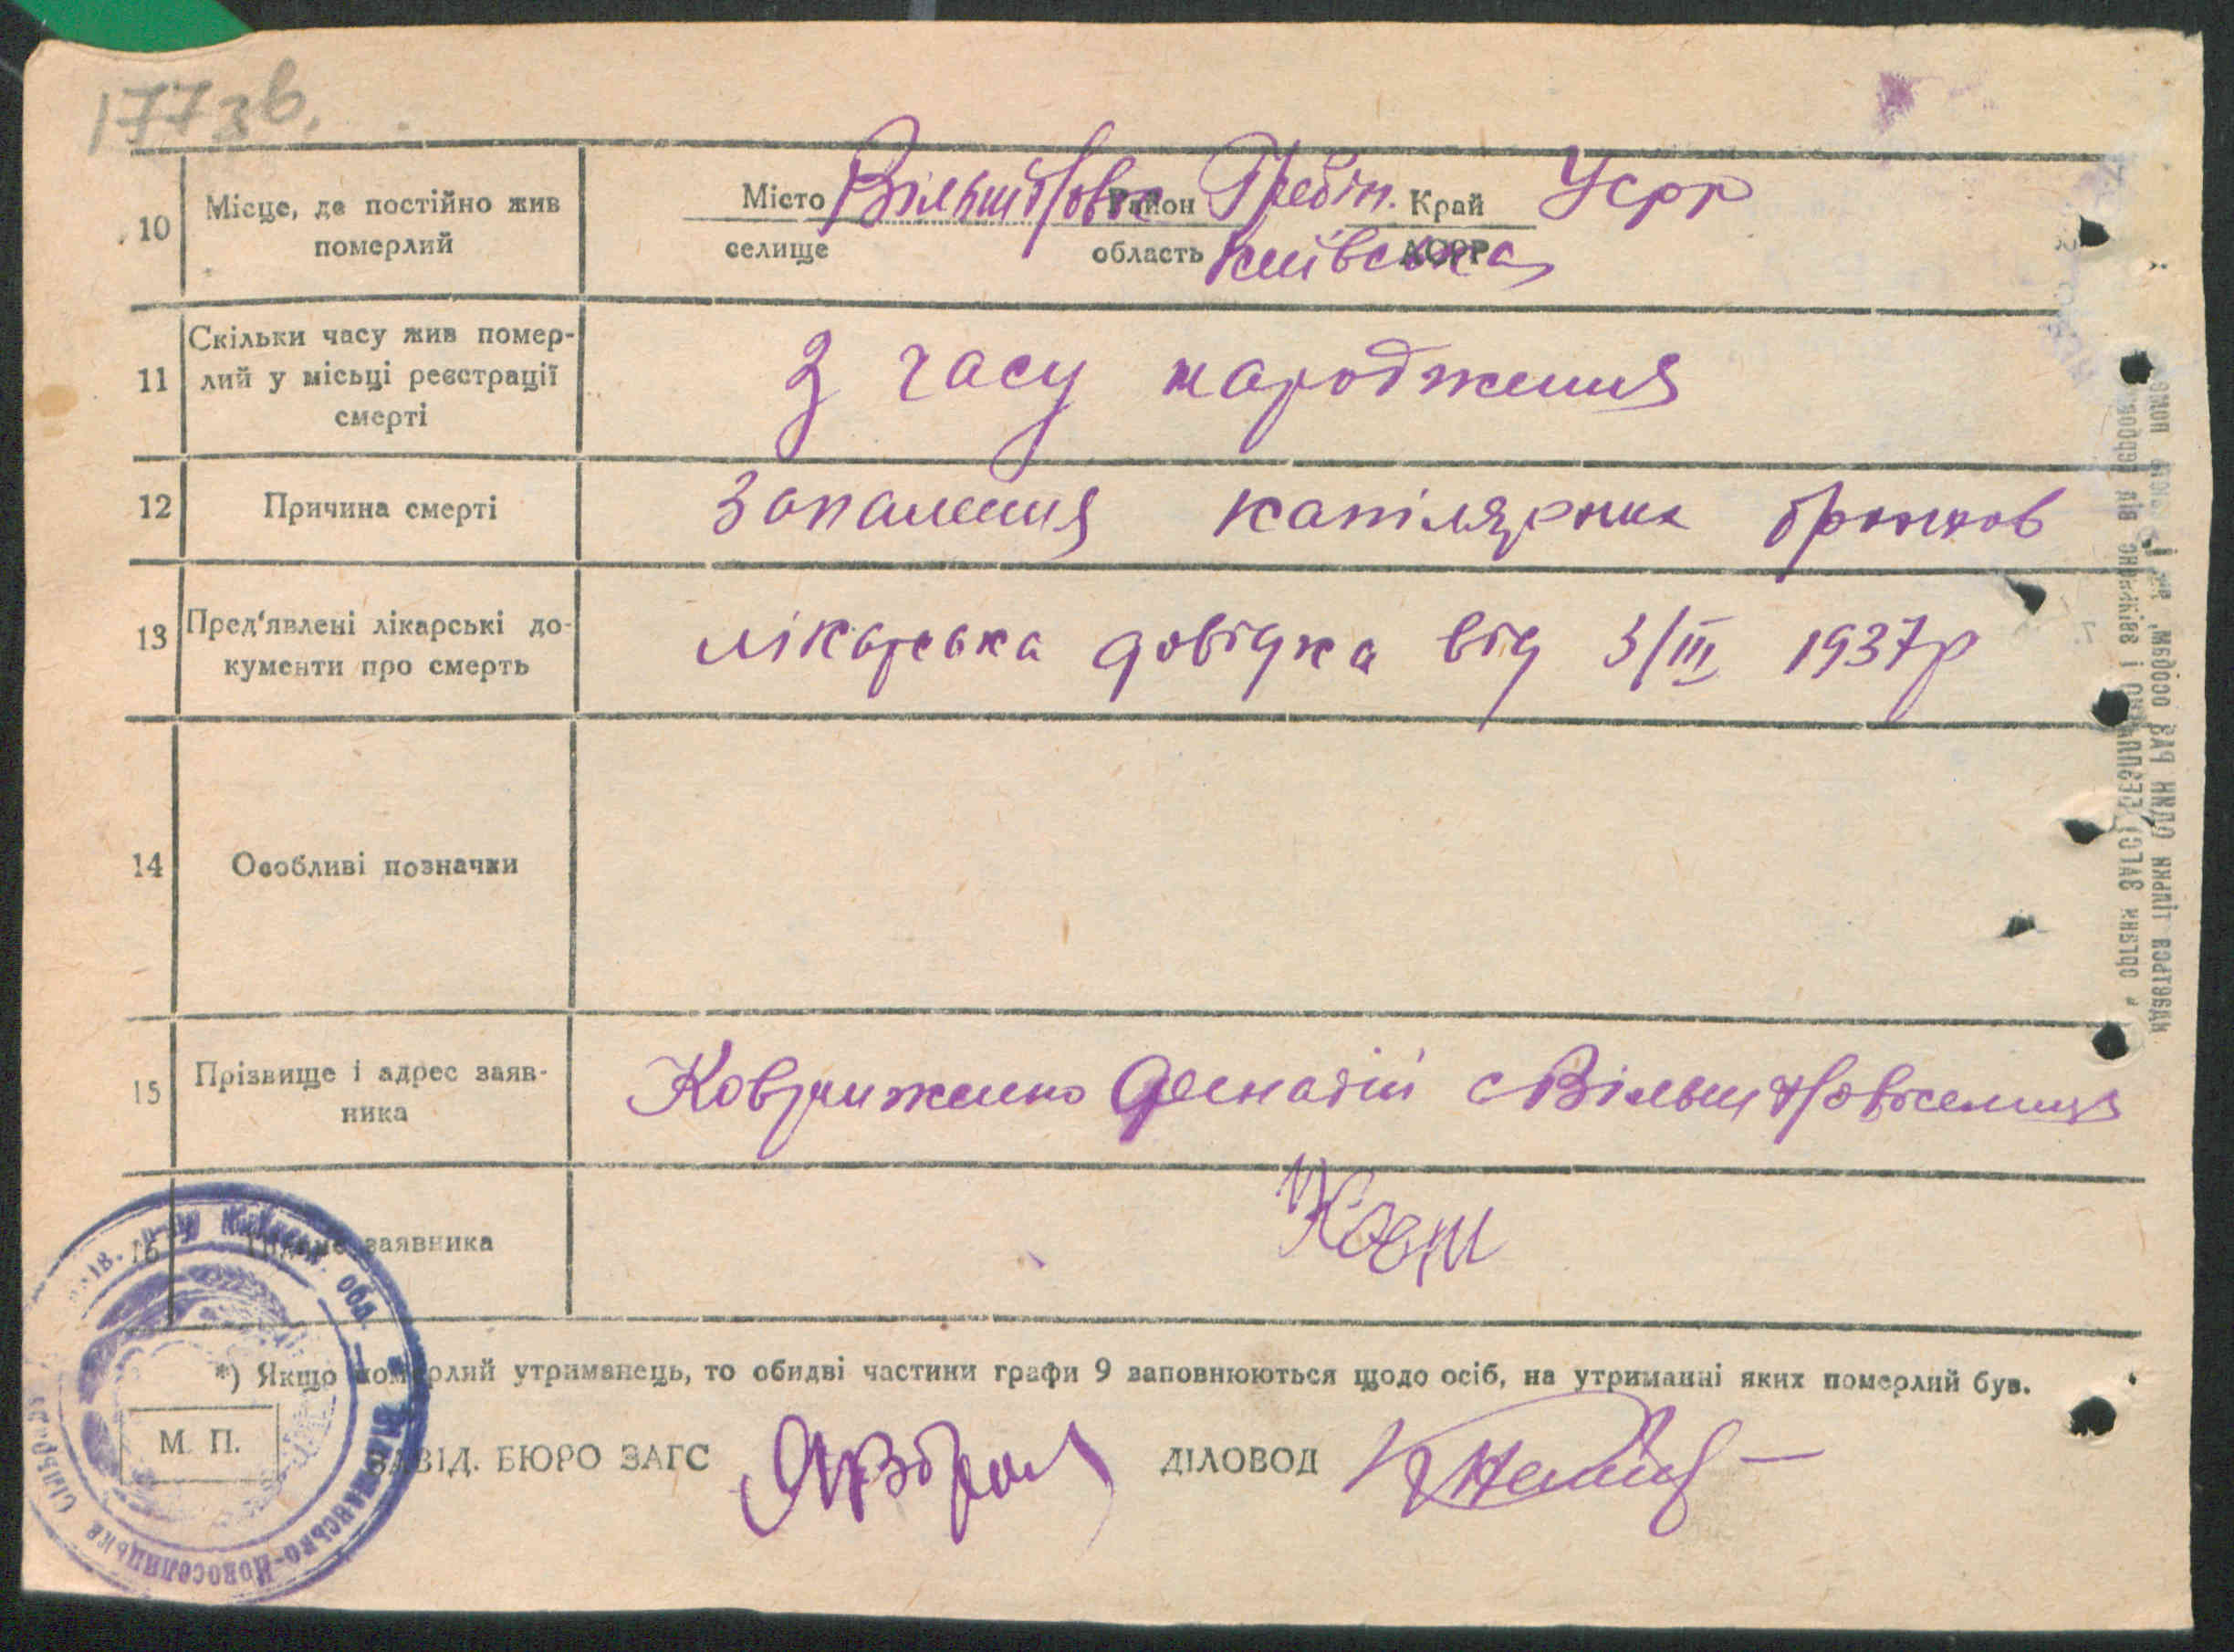 1773в.
10 Місце, де постійно жив померлий
Місто Вільш Нов Район Гребін. Край УСРР
селище область Київська АСРР
11 Скільки часу жив помер-
лий у місьці реєстрації
смерті
З часу народження
12 Причина смерті Запалення капілярних бронхов
13 Пред'явлені лікарські до-
кументи про смерть
лікарська довідка від 3/III 1937р
14 Особливі позначки
15 Прізвище і адрес заяв-
ника
Ковриженко с Вільш Новоселиця
16 заявника
*) Якщо померлий утриманець, то обидві частини графи 9 заповнюються щодо осіб, на утриманні яких померлий був.
М. П.
ЗАВІД. БЮРО ЗАГС ДІЛОВОД